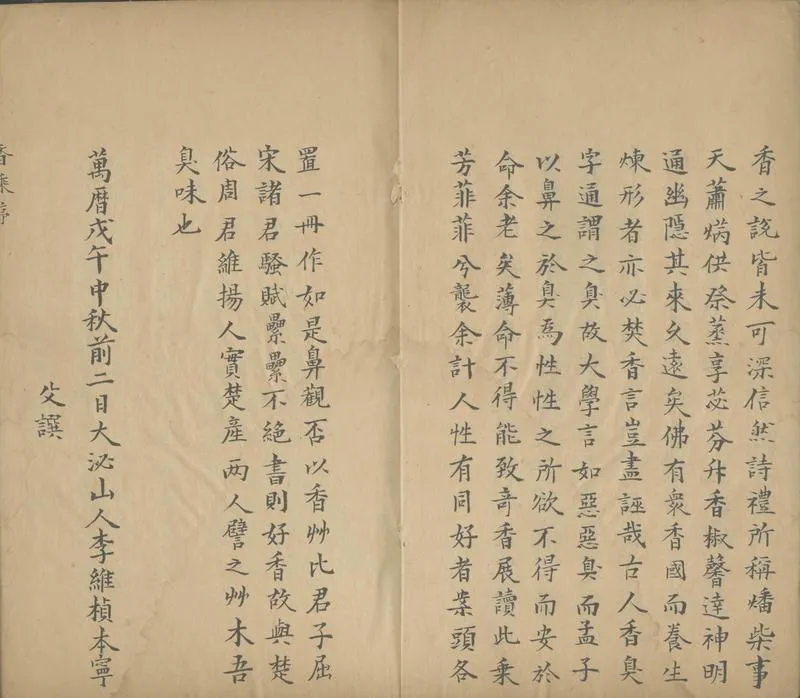 香之説皆未可深信然詩禮所稱燔柴事
天蕭焫供祭蒸享苾芬升香椒馨達神明
通幽隱其來久遠矣佛有衆香國而養生
煉形者亦必焚香言豈盡誣哉古人香臭
字通謂之臭故大學言如惡惡臭而孟子
以鼻之於臭爲性性之所欲不得而安於
命余老矣薄命不得能致奇香展讀此乗
芳菲菲兮襲余計人性有同好者案頭各
置一冊作如是鼻觀否以香艸比君子屈
宋諸君騷賦纍纍不絕書則好香故與楚
俗周君維揚人實楚産兩人譬之艸木吾
臭味也
萬曆戊午中秋前二日大泌山人李維楨本寧
父譔
香乘序